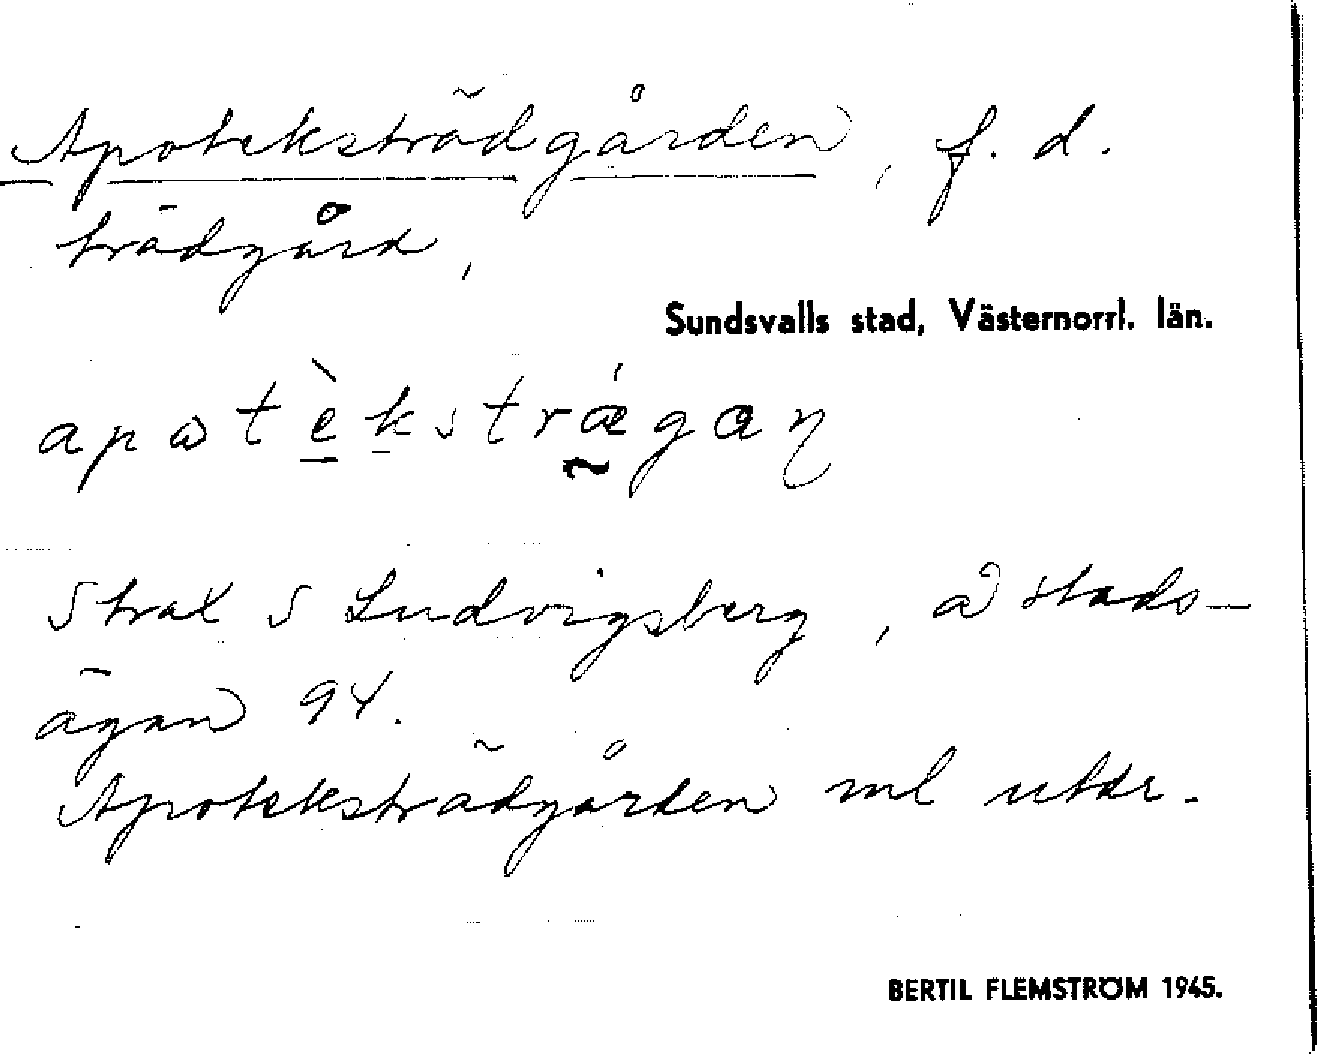 Apoteksträdgården, f. d.
trädgård,
Sundsvalls stad, Västernorrl. län.
apωtèkstrǽgaƞ
Strax S Ludvigsberg, å stads-
ägan 94.
Apoteksträdgården ml uttr.
BERTIL FLEMSTRÖM 1945.